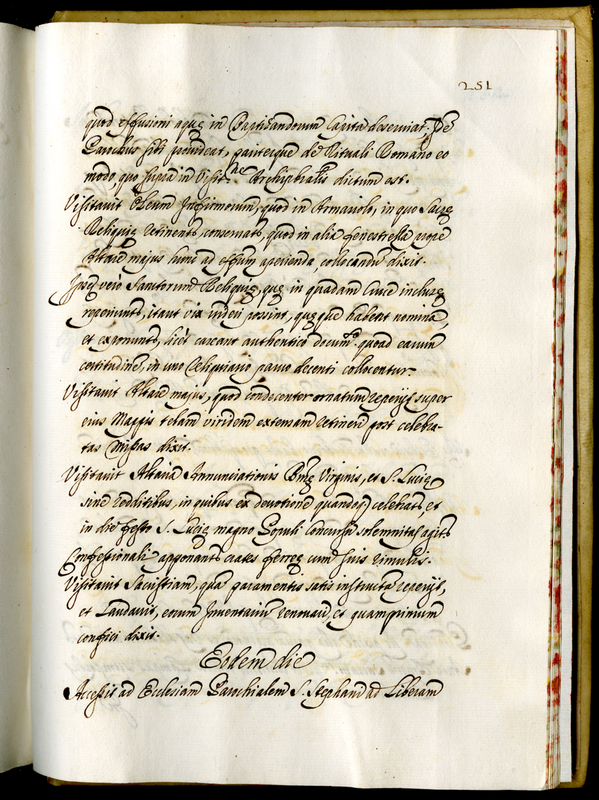 251
quod effusioni aquę in Baptisandorum Capita deserviat. De
Parochus sibi provideat, pariterque de Rituali Romano eo
modo, quo supra in Visit.ne Archipr̃alis dictum est.
Visitavit Oleum Infirmorum, quod in Armariolo, in quo Sacrę
Reliquię retinentr, conservatr, quod in alia fenestrella prope
Altare majus hunc ad effum aperienda, collocandũ dixit.
Ipsę vero Sanctorum Reliquię, quę in quadam Cruce inclusę
reperiuntr, itaut vix videri possint, quęque habent nomina,
et exponuntr, licet careant authentico docum.to quoad earum
certitudinẽ, in uno Reliquiario parvo decenti collocentur.
Visitavit Altare majus, quod condecenter ornatum reperijt, super
eius Mappis telam viridem extensam retineri post celebra-
tas Missas dixit.
Visitavit Altaria Annunciationis Bmę Virginis, et S. Lucię
sine redditibus, in quibus ex devotione quandoq; celebratr, et
in die festo S. Lucię magno Populi concursu solemnitas agitr
Confessionali apponantr crates ferreę cum suis
Visitavit Sacristiam, quã paramentis satis instructã reperijt,
et Laudavit, eorum Inventarium renovari, et quamprimum
confici dixit.
Eodem die
Accessit ad Ecclesiam Parochialem S. Stephani ad Liberam